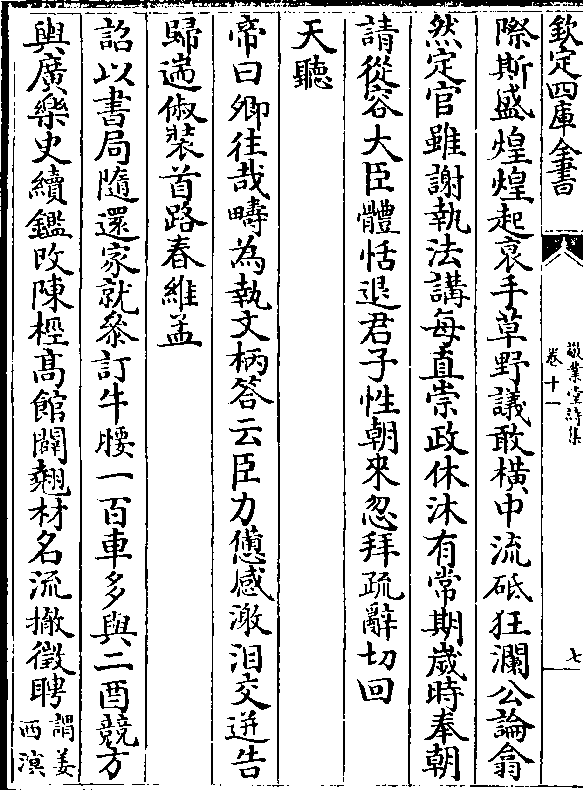 欽定四庫全書
敬業堂詩集
卷十一
七
際斯盛煌煌起衰手草野議敢橫中流砥狂瀾公論翕
然定官雖謝執法講每直崇政休沐有常期歲時奉朝
請從容大臣體恬退君子性朝來忽拜疏辭切回
天聽
帝曰卿往哉疇為執文柄答云臣力憊感激泪交迸告
歸遄俶裝首路春維孟
詔以書局隨還家就叅訂牛腰一百車多與二酉競方
輿廣樂史續鑑攺陳桱髙館闢翹材名流撤徵聘
謂姜
西溟